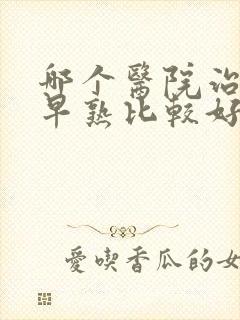 哪个醫院治
早熟比較好
愛喫香瓜的女